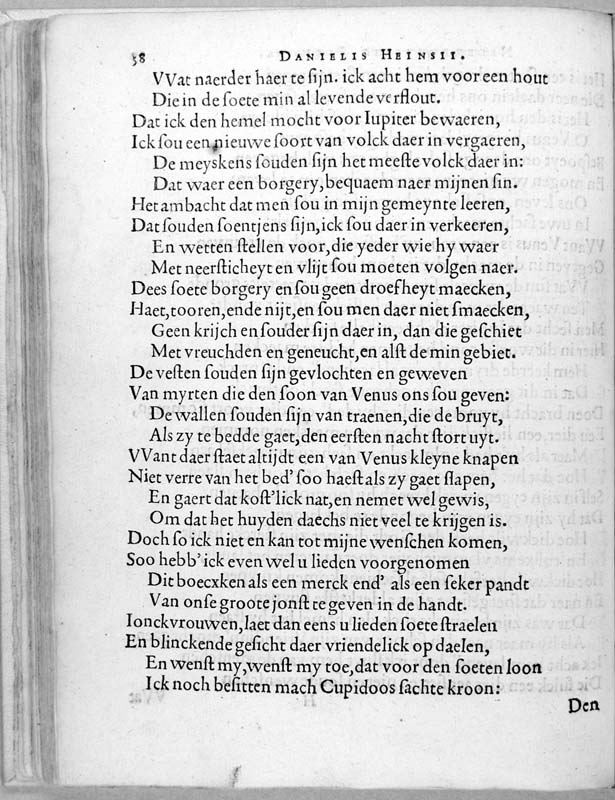 58 DANIELIS HEINSII.
VVat naerder haer te ſijn. ick acht hem voor een hout
Die in de ſoete min al levende verſlout.
Dat ick den hemel mocht voor Iupiter bewaeren,
Ick ſou een nieuwe ſoort van volck daer in vergaeren,
De meyskens ſouden ſijn het meeſte volck daer in:
Dat waer een borgery, bequaem naer mijnen ſin.
Het ambacht dat men ſou in mijn gemeynte leeren,
Dat ſouden ſoentjens ſijn, ick ſou daer in verkeeren,
En wetten ſtellen voor, die yeder wie hy waer
Met neerſticheyt en vlijt ſou moeten volgen naer.
Dees ſoete borgery en ſou geen droefheyt maecken,
Haet, tooren, ende nijt, en ſou men daer niet ſmaecken,
Geen krijch en ſou'der ſijn daer in, dan die geſchiet
Met vreuchden en geneucht, en alſt de min gebiet.
De veſten ſouden ſijn gevlochten en geweven
Van myrten die den ſoon van Venus ons ſou geven:
De wallen ſouden ſijn van traenen, die de bruyt,
Als zy te bedde gaet, den eerſten nacht ſtort uyt.
VVant daer ſtaet altijdt een van Venus kleyne knapen
Niet verre van het bed' ſoo haeſt als zy gaet ſlapen,
En gaert dat koſt'lick nat, en nemet wel gewis,
Om dat het huyden daechs niet veel te krijgen is.
Doch ſo ick niet en kan tot mijne wenſchen komen,
Soo hebb' ick even wel u lieden voorgenomen
Dit boecxken als een merck end' als een ſeker pandt
Van onſe groote jonſt te geven in de handt.
Ionckvrouwen, laet dan eens u lieden ſoete ſtraelen
En blinckende geſicht daer vriendelick op daelen,
En wenſt my, wenſt my toe, dat voor den ſoeten loon
Ick noch beſitten mach Cupidoos ſachte kroon:
Den